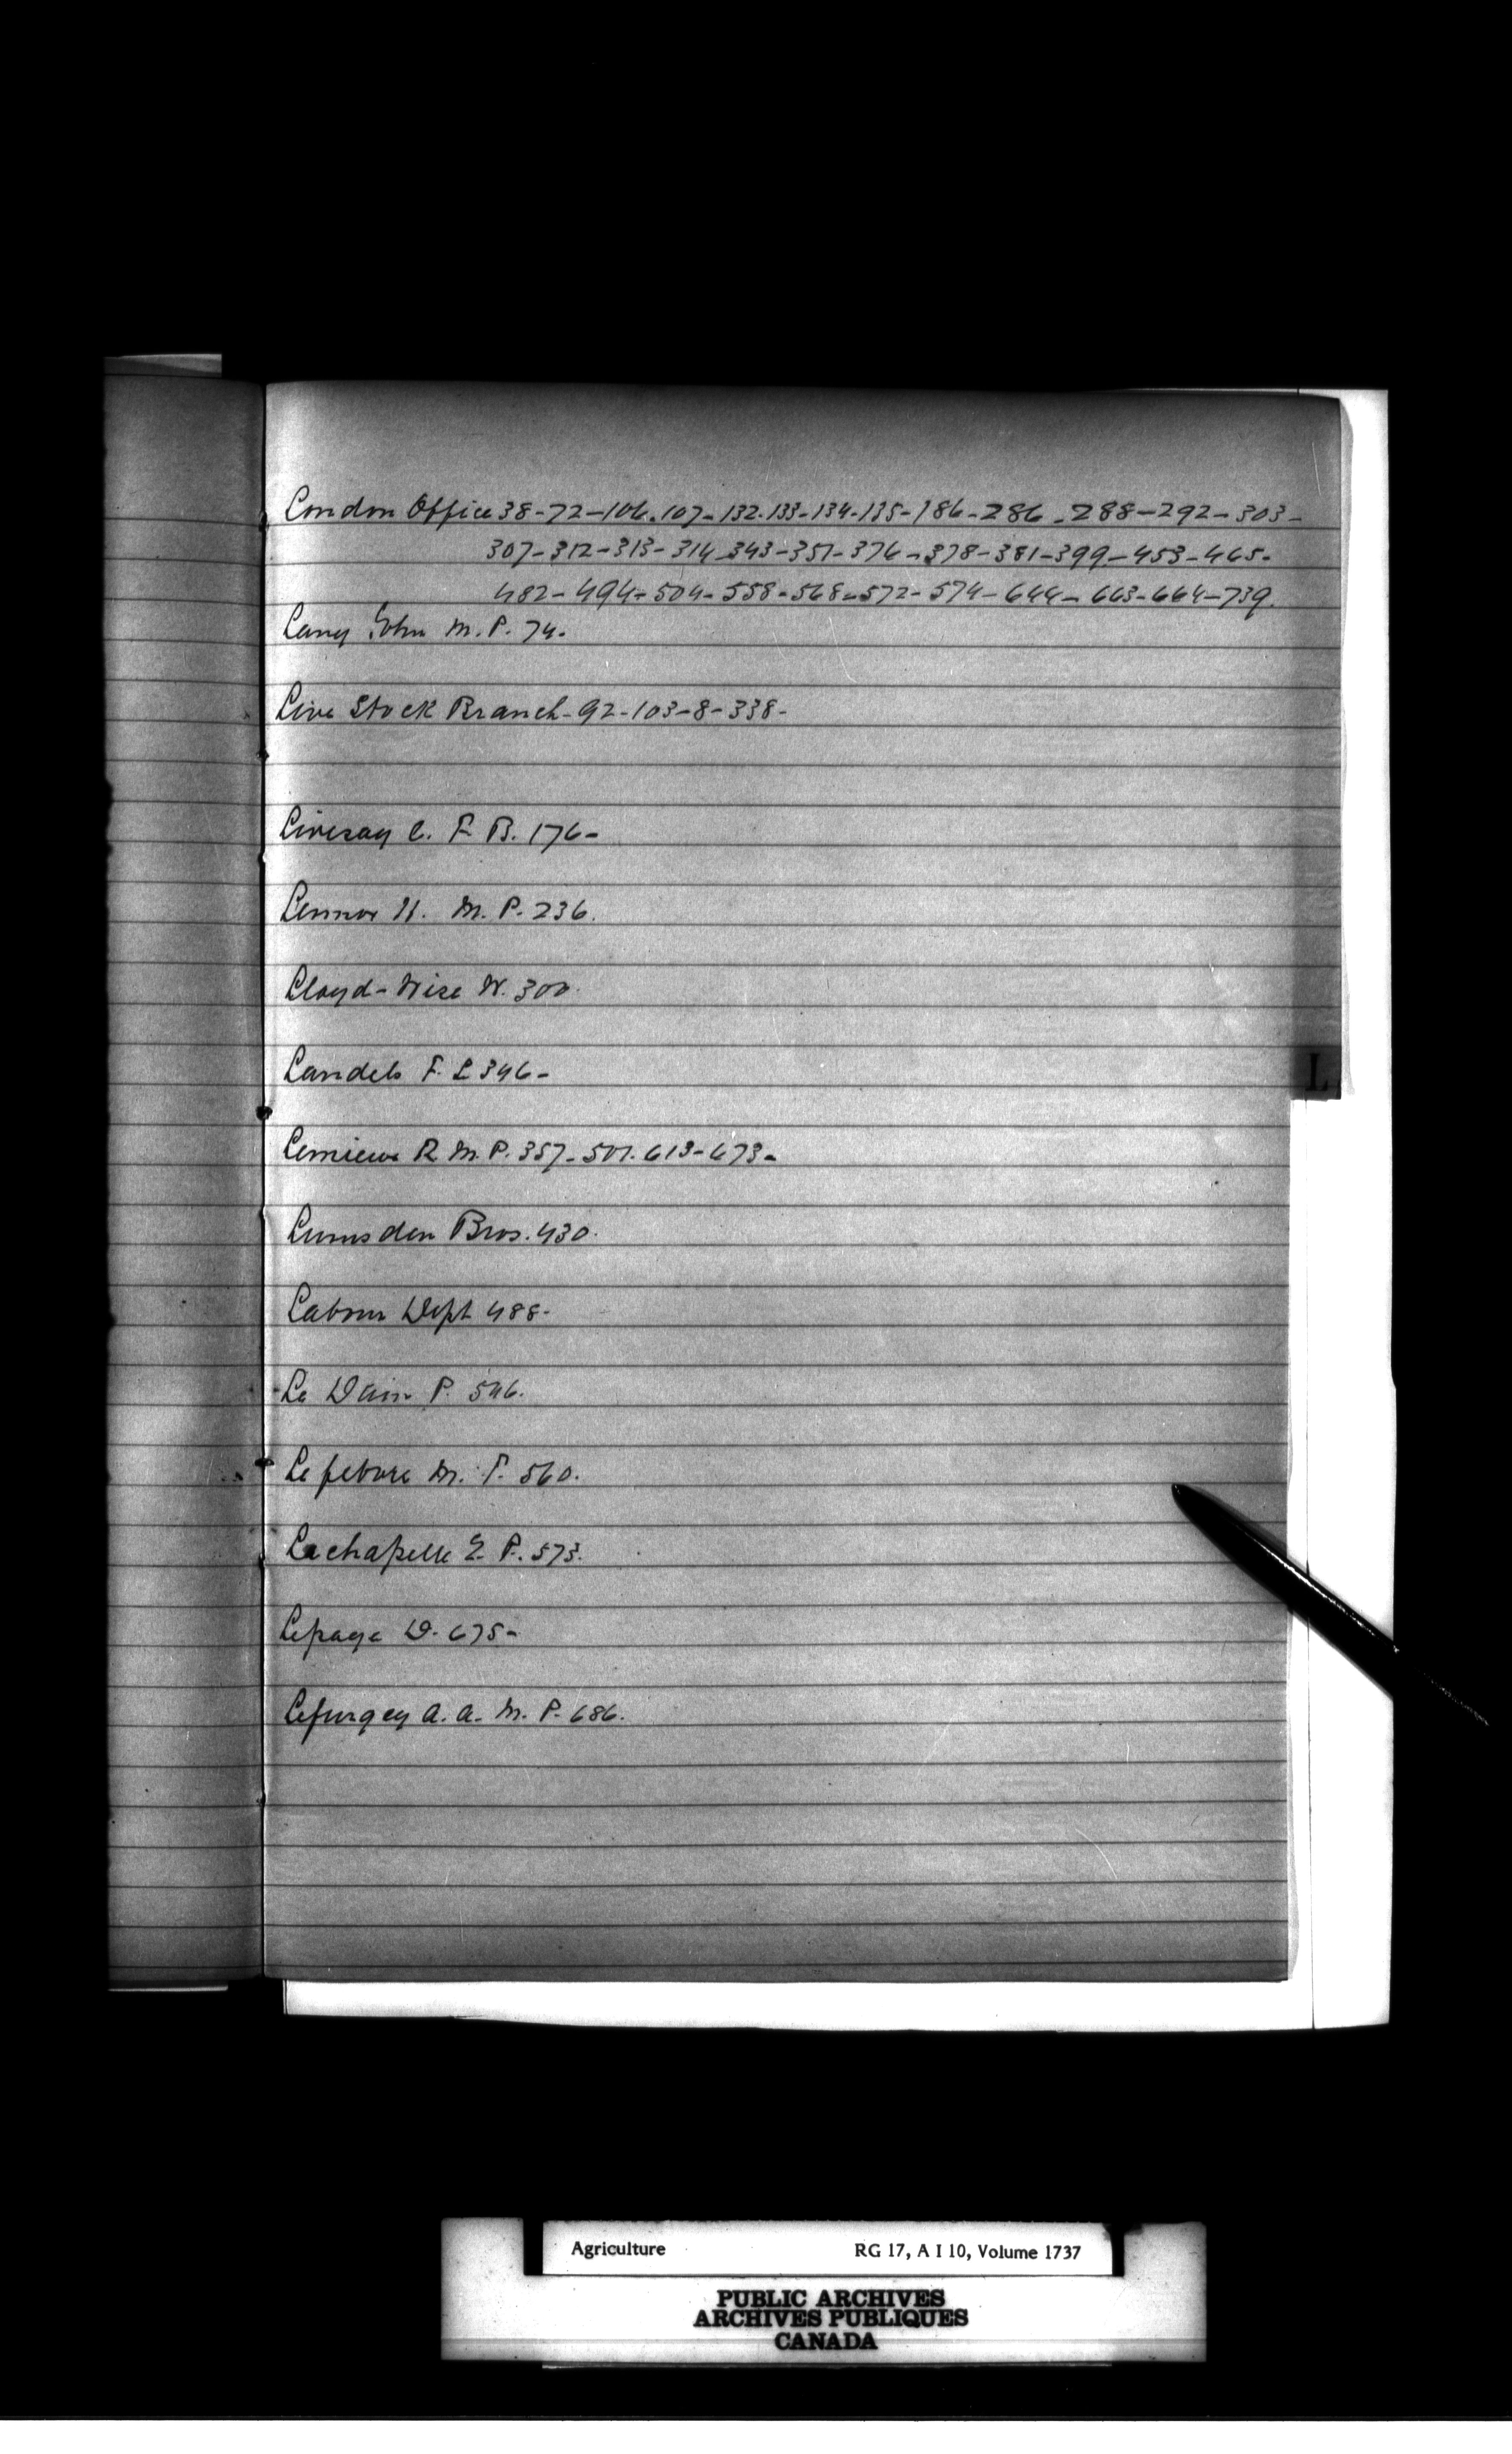 London Office 38-72-106.107-132.133-134-135-186-286-288-292-303-
307-312-313-314-343-351-376-378-381-399-453-465-
482-494-504-558-568-572-574-644-663-664-739.
Lang John M.P. 74.
Live Stock Branch-92-103-8-338-
Livesay C. F. B. 176-
Lennox H. M. P. 236.
Lloyd-Wise W. 300.
Landels F. L 346-
L
Lemieux R M. P. 357-501.613-673-
Lumsden Bros. 430.
Labour Dept 488-
Le Dain P. 546.
Lefebvre M. P. 560.
Lachapelle E. P. 573.
Lepage D. 675-
Lefurgey A. A. M. P. 686.
Agriculture RG 17, A I 10, Volume 1737
PUBLIC ARCHIVES
ARCHIVES PUBLIQUES
CANADA